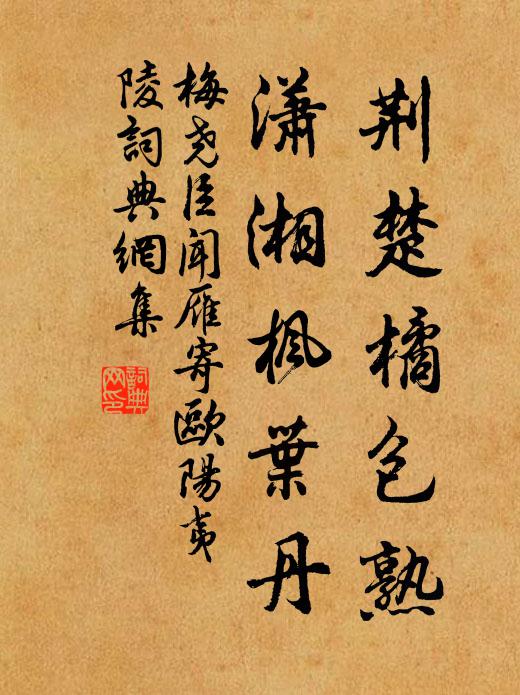 荆楚橘包熟
瀟湘楓葉丹
梅堯臣聞雁寄歐陽夷
陵詞典網集
詞典
网印